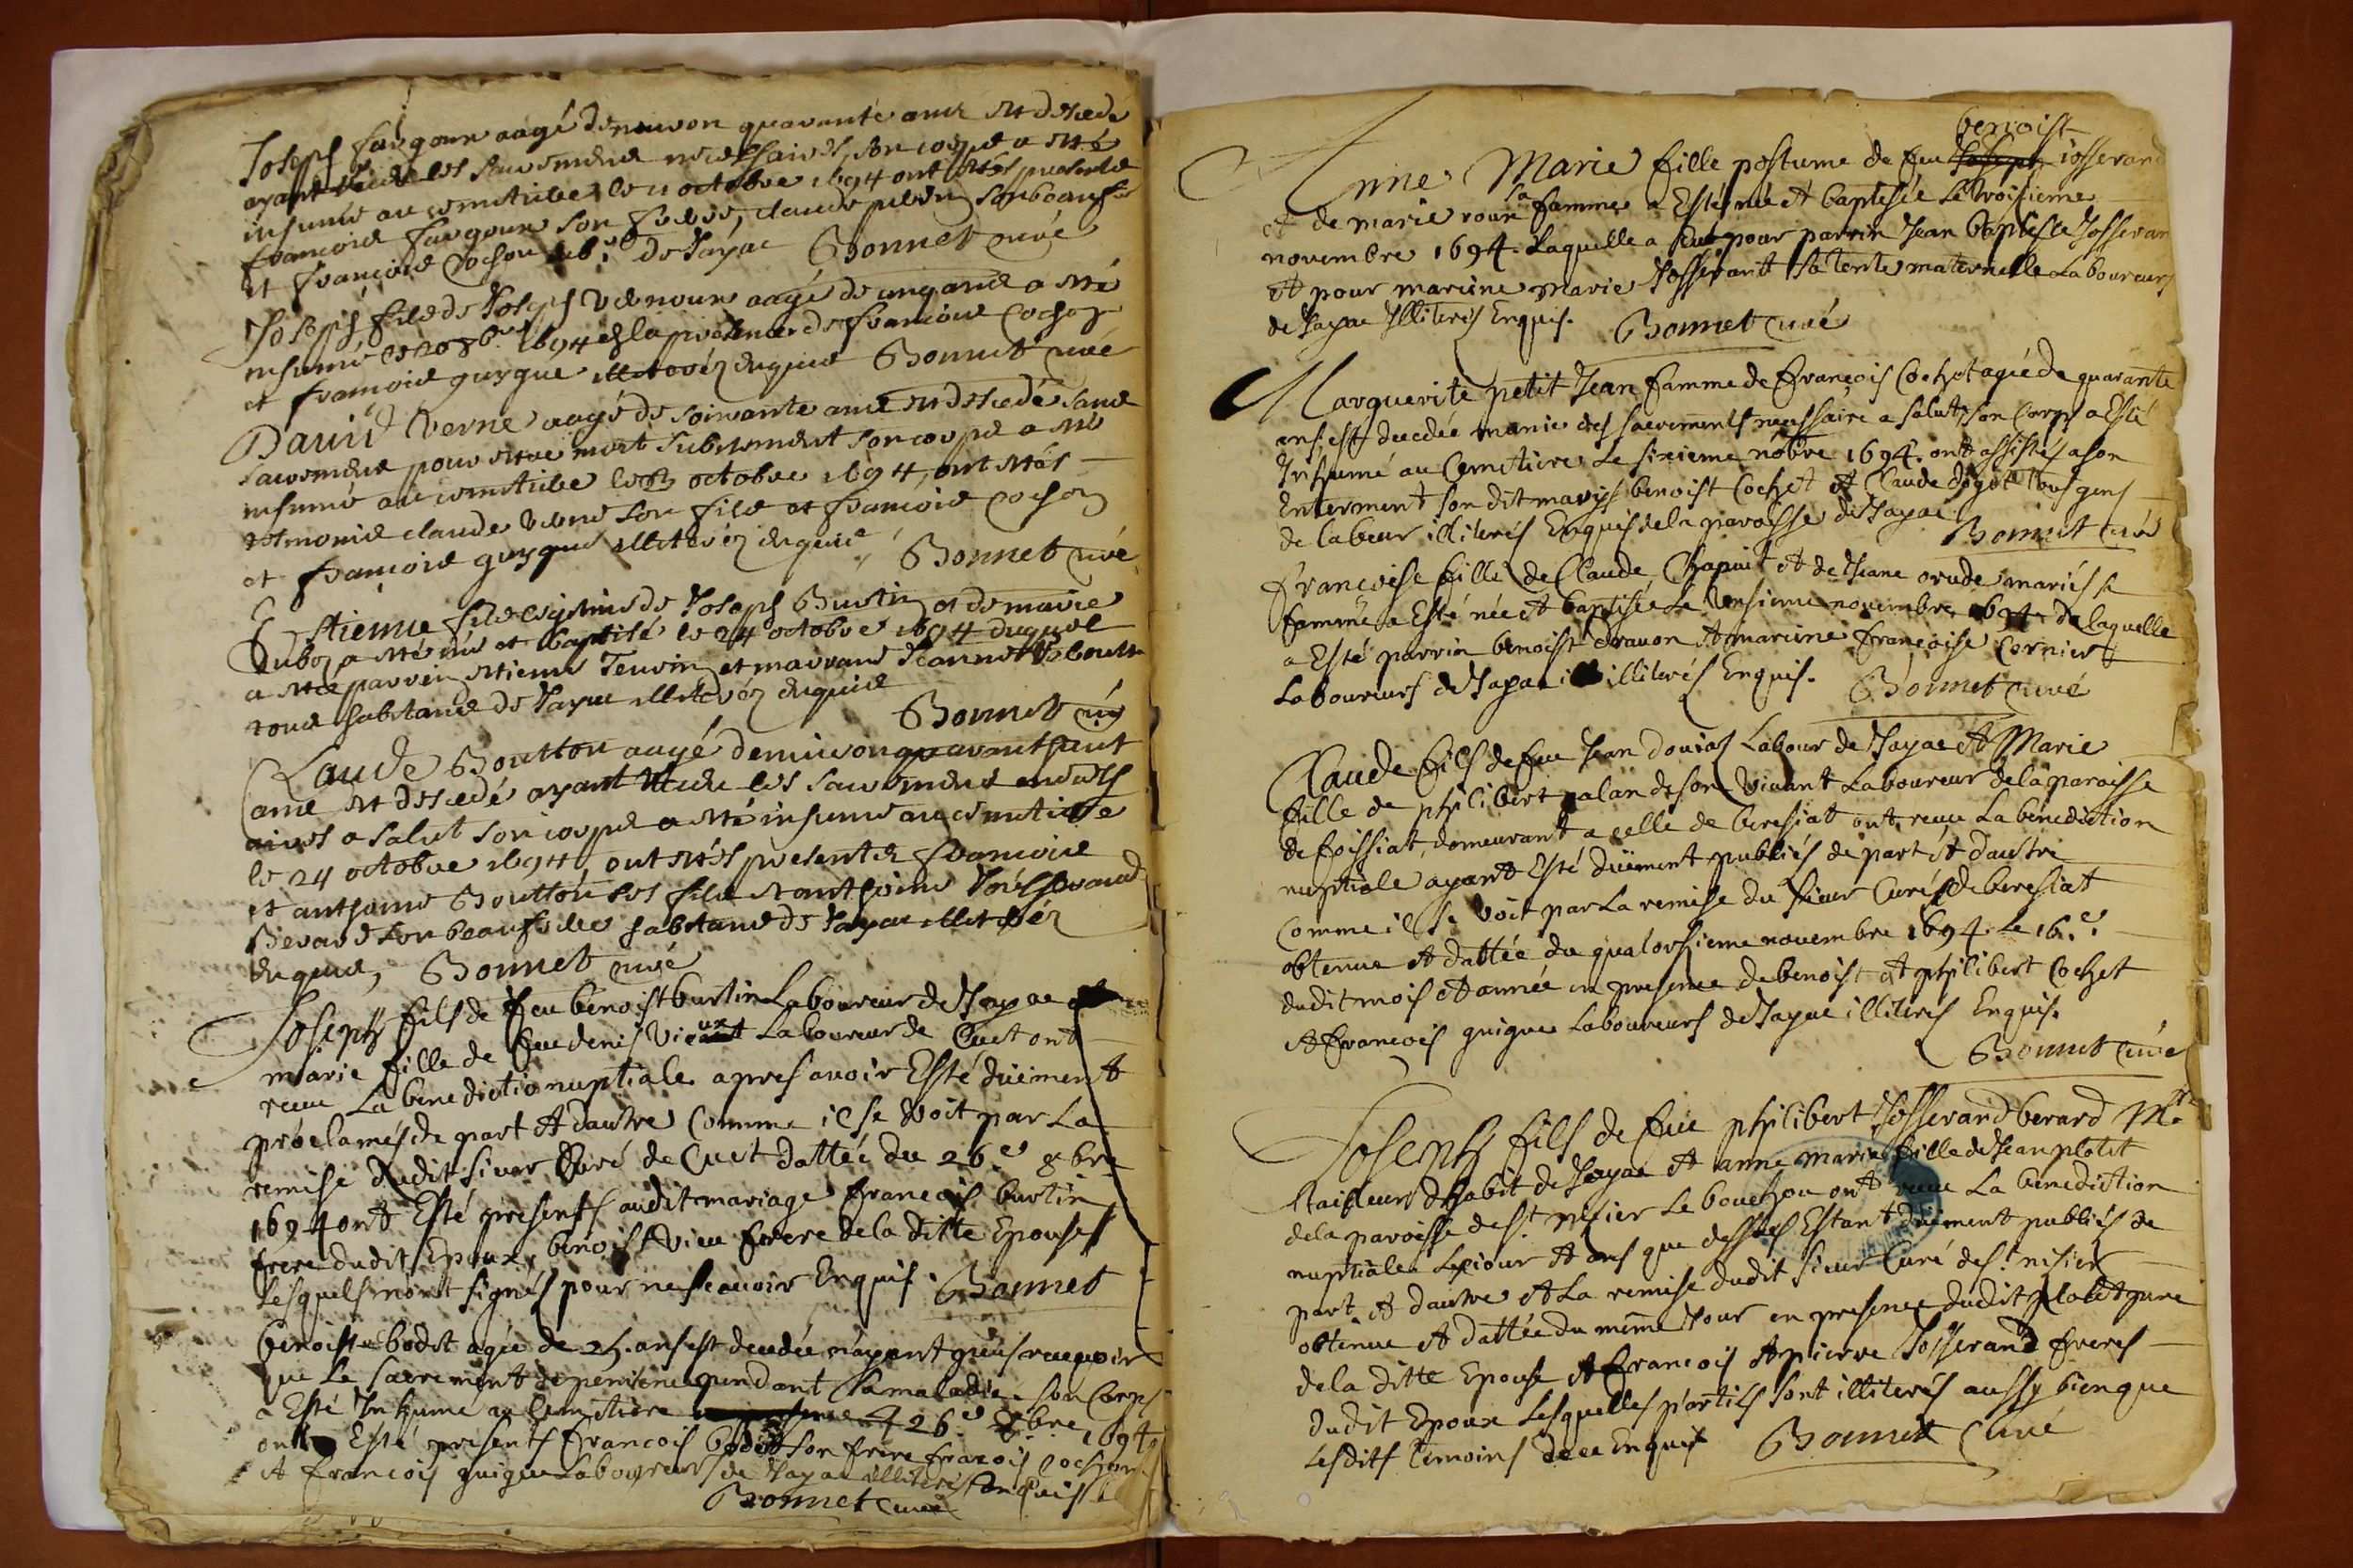 Joseph fargour aagé denuiron quarante ans est decede
ayant receu les sacrements necessaires, son corps a esté
inhumé au cimetiere le 11 octobre 1694 ont estés presents
francois fargour son frere, claude son beauf.
et francois cochon de Jayac Bonnet curé
Joseph fils de Joseph aagé de cinq ans a esté
inhumé ce 20 8bre 1694 en la presence de francois cochon
et francois guygue illiterés enquis Bonnet curé
David Verne aagé de soixante ans est decedé sans
sacrements pour estre mort subitement son corps a esté
inhumé au cimetiere le octobre 1694, ont estés
tesmoins claude verne son fils et francois cochon
et francois guygue illiterés enquis Bonnet curé
Estienne fils legitime de Joseph Burtin et de marie
Dubo a esté né et baptisé le 24 octobre 1694 duquel
a esté parrin estienne Teurin et marraine Jeanne
tous habitans de Jayac illiterés enquis
Bonnet curé
Claude Boutton aagé denuiron quarante huit
ans est decedé ayant receu les sacrements necess
aires a salut son corps a esté inhumé au cimetiere
le 24 octobre 1694, ont estés presents francois
et anthoine Boutton ses fils et anthoine Josserand
Berard son beaufrere habitans de Jayac illiterés
enquis, Bonnet curé
Joseph fils de feu benoist burtin Laboureur de Jayac et
marie fille de feu denis Vieux Laboureur de Cuet ont
receu La benedictio nuptiale apres auoir Esté düement
proclamés de part et dautre Comme il se voit par La
remise dudit sieur Curé de Cuet dattée du 26.e 8bre
1694 ont Esté presents audit mariage francois burtin
frere dudit Epoux, benoist vieu frere de la ditte Epouse
Lesquels n'ont signés pour ne scauoir Enquis. Bonnet
benoiste bodit agée de 25. ans est decedée n'ayant
que Le sacrement de penitence pendant sa maladie. son Corps
a Esté Inhumé au Cemetiere 26.e 8bre 1694
ont Esté presents francois bodit son frere francois cochon
et francois guigue Laboureurs de Jayac illiterés Enquis
Bonnet curé
benoist
Anne Marie fille postume de feu Joseph josserand
et de marie roux sa famme a Esté née et baptisée Le troisieme
novembre 1694. Laquelle a eu pour parrin Jean baptiste Josseran
et pour marine marie Josserant sa tente maternelle Laboureurs
de Jayac Illiterés Enquis. Bonnet curé
Marguerite petit Jean famme de françois Cochet agée de quarante
ans est decedée munie des sacrements necessaire a salut, son Corps a Esté
Inhumé au Cemetiere Le sixieme nobre 1694. ont assistés a son
Enterment son dit marys benoist Cochet et Claude tous gens
de labeur illiterés Enquis de la paroisse de Jayac. Bonnet curé
françoise fille de Claude Chapuit et de Jeane mariés sa
famme a Esté née et baptisée Le onsieme novembre 1694. de laquelle
a Esté parrin benoist et marine françoise Cornier
Laboureurs de Jayac illiterés Enquis. Bonnet curé
Claude fils de feu Jean Labour de Jayac et Marie
fille de philibert palan de son viuant Laboureur de la paroisse
de foissiat, demeurant a celle de beresiat ont receu La benediction
nuptiale ayant Esté düement publiés de part et dautre
Comme il se voit par La remise du sieur Curé de beresiat
obtenue et dattée du quatorsieme novembre 1694. Le 16.e
dudit mois et année en presence de benoist et philibert Cochet
et francois guigue Laboureurs de Jayac illiterés Enquis.
Bonnet curé
Joseph fils de feu philibert Josserand berard M.e
tailleur d'habit de Jayac et anne marie fille de Jean plotet
de la paroisse de st. nisier Le bouchou ont receu La benediction
nuptiale Le jour et ans que dessus Estant düement publiés de
part et dautre et La remise dudit sieur Curé de st. nisier
obtenue et dattée du même Jour en presence dudit plotet pere
de la ditte Epouse et francois et pierre Josserand freres
dudit Epoux Lesquelles parties sont illiterés aussy bien que
Lesdits temoins de ce Enquis Bonnet Curé